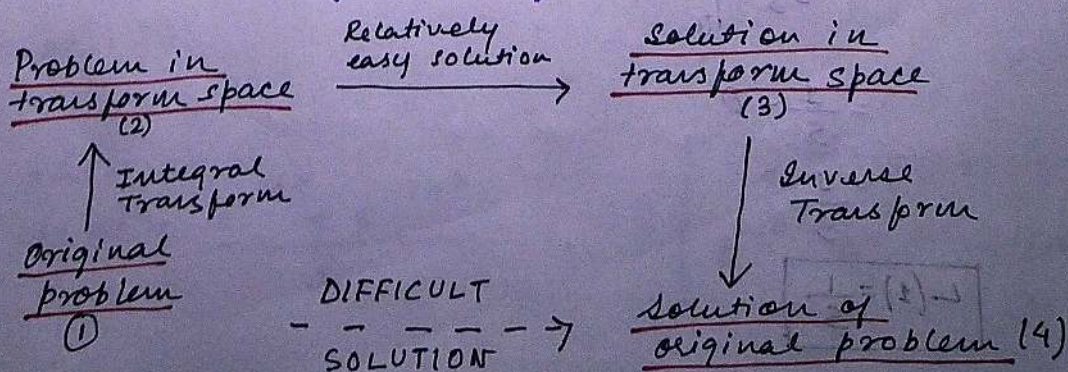 Problem in
transform space
(2)
Relatively
easy solution
Solution in
transform space
(3)
Integral
Transform
Inverse
Transform
Original
problem
①
DIFFICULT
SOLUTION
Solution of
original problem (4)